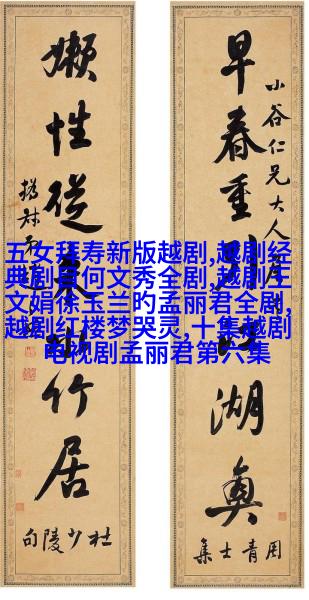 早春重引江湖興
小谷仁兄大人
周青士集
嬾性從來水竹居
杜少陵句
五女拜寿新版越剧,越剧经
典剧目何文秀全剧,越剧王
文娟徐玉兰旳孟丽君全剧,
越剧红楼梦哭灵,十集越剧
电视剧孟丽君第六集